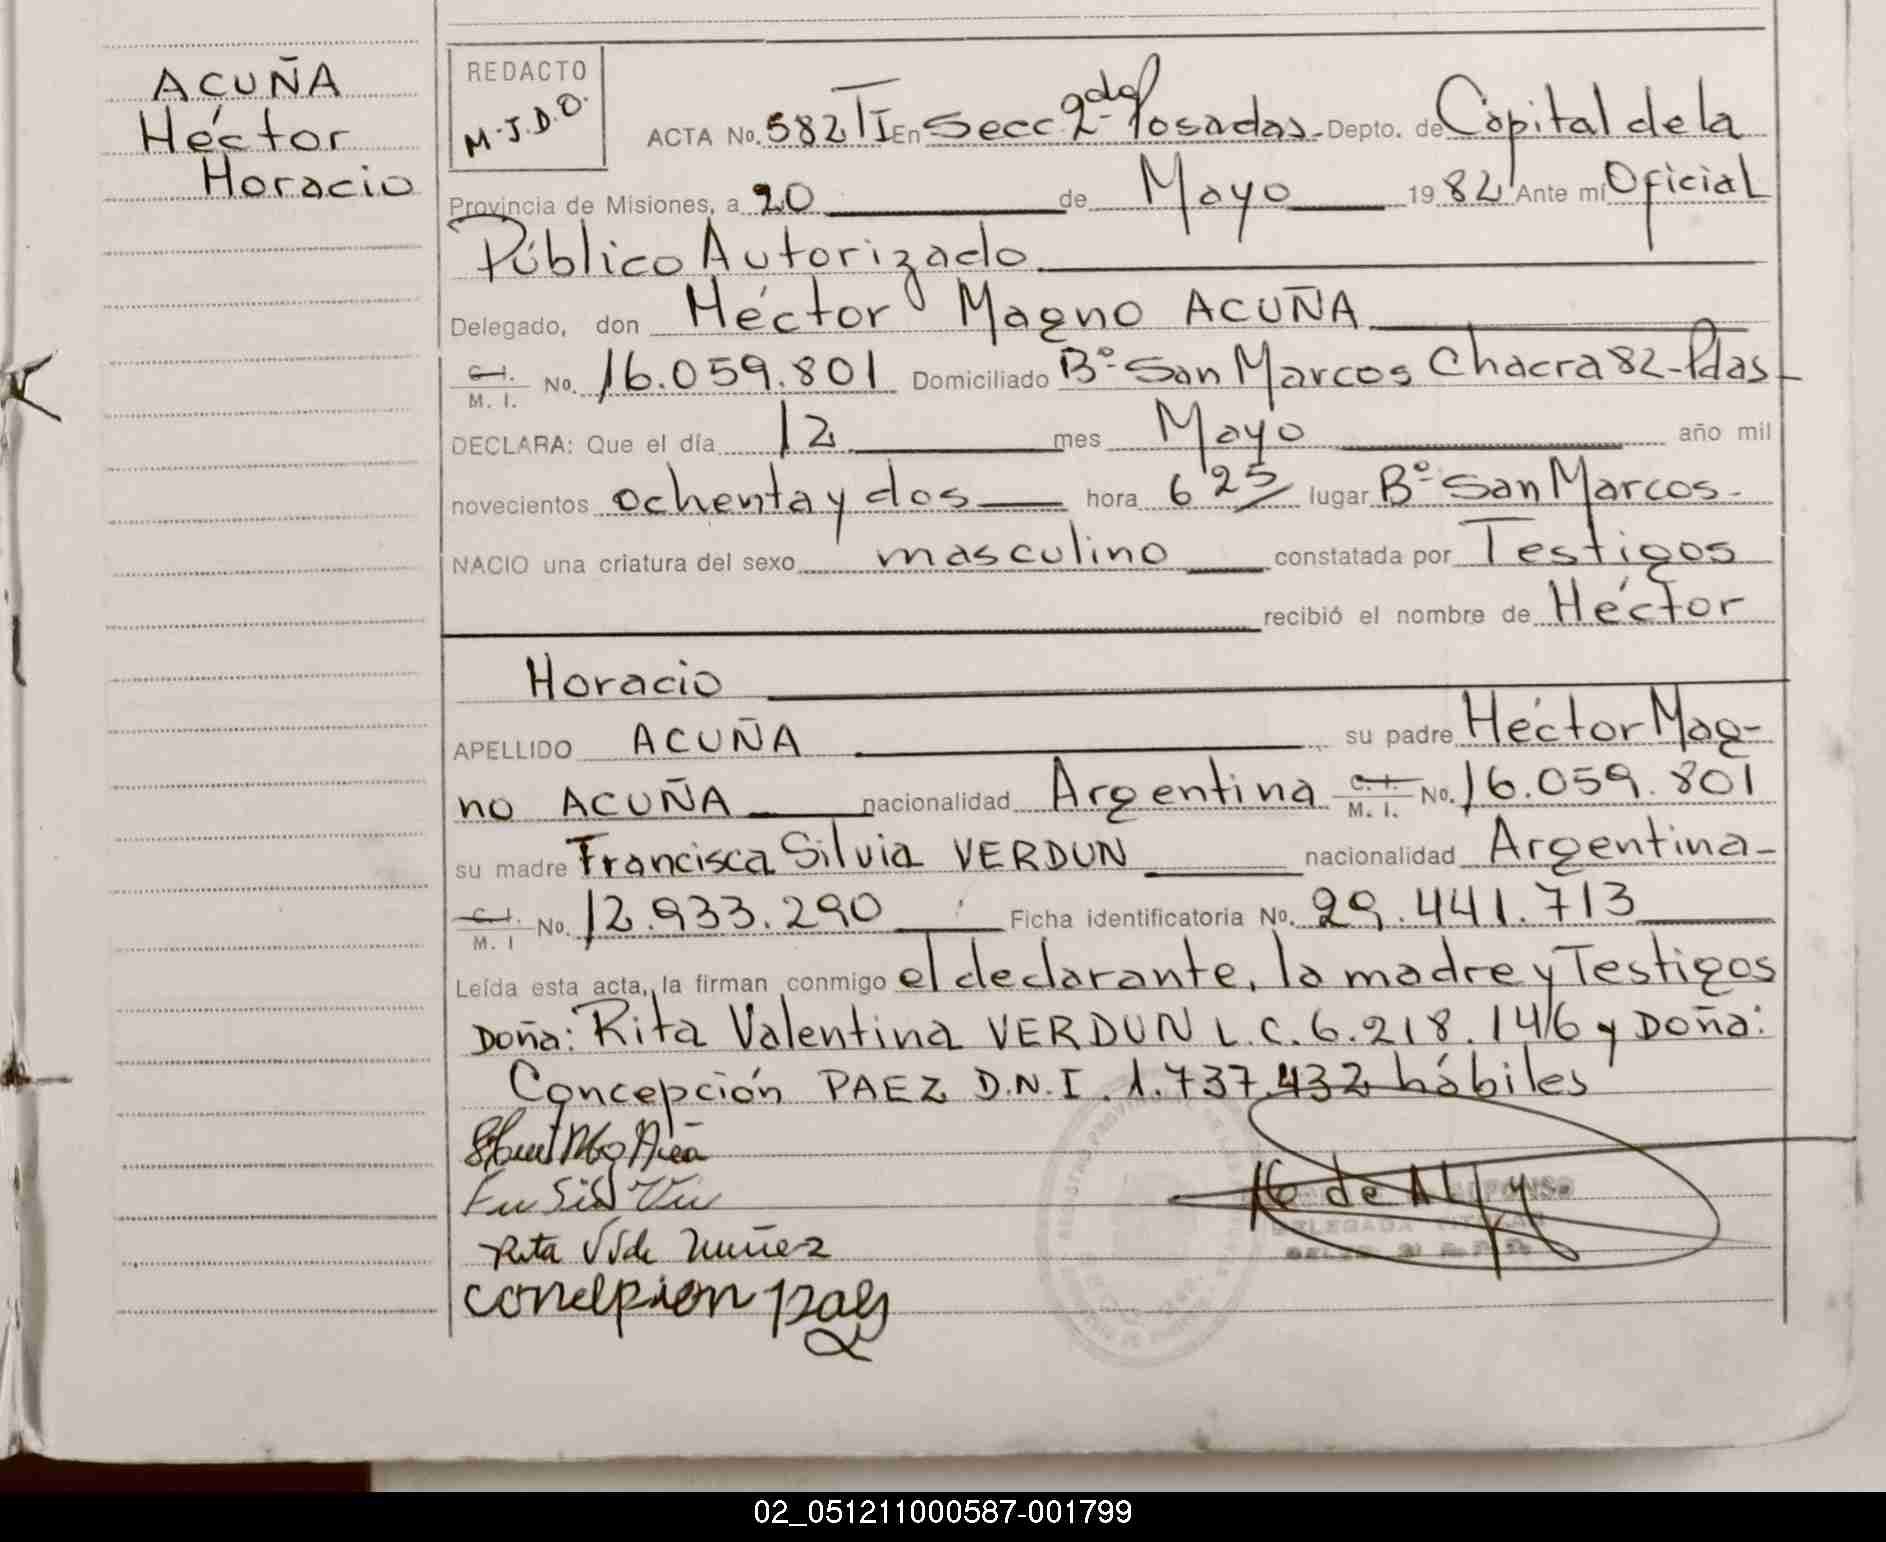 ACUÑA
Héctor
Horacio
REDACTO
M.J.D.O.
ACTA No. 582 TI En Secc. 2da Posadas.- Depto. de Capital de la
Provincia de Misiones, a 20 de Mayo 1982 Ante mí Oficial
Público Autorizado
Delegado, don Héctor Magno ACUÑA
C.I. M. I. No. 16.059.801 Domiciliado Bº San Marcos Chacra 82-Pdas-
DECLARA: Que el día 12 mes Mayo año mil
novecientos ochenta y dos hora 6 25 lugar Bº San Marcos.-
NACIO una criatura del sexo masculino constatada por Testigos
recibió el nombre de Héctor
Horacio
APELLIDO ACUÑA su padre Héctor Mag-
no ACUÑA nacionalidad Argentina C.I. M. I. No. 16.059.801
su madre Francisca Silvia VERDUN nacionalidad Argentina-
C.I. M. I No. 12.933.290 Ficha identificatoria No. 29.441.713
Leída esta acta, la firman conmigo el declarante, la madre y Testigos
Doña: Rita Valentina VERDUN L.C. 6.218.146 y Doña:
Concepción PAEZ D.N.I. 1.737.432 hábiles
Rita Núñez
concepcion
DELEGADA TITULAR
02_051211000587-001799